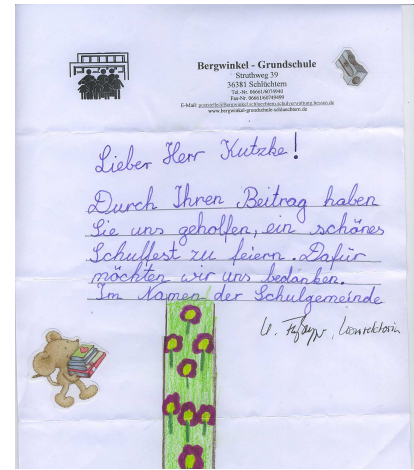 Bergwinkel - Grundschule
Struthweg 39
36381 Schlüchtern
Tel.-Nr. 06661/6074940
Fax-Nr. 06661/60749499
E-Mail: poststelle@bergwinkel.schluechtern.schulverwaltung.hessen.de
www.bergwinkel-grundschule-schluechtern.de
Lieber Herr Kutzke!
Durch Ihren Beitrag haben
Sie uns geholfen, ein schönes
Schulfest zu feiern. Dafür
möchten wir uns bedanken.
Im Namen der Schulgemeinde
Konrektorin